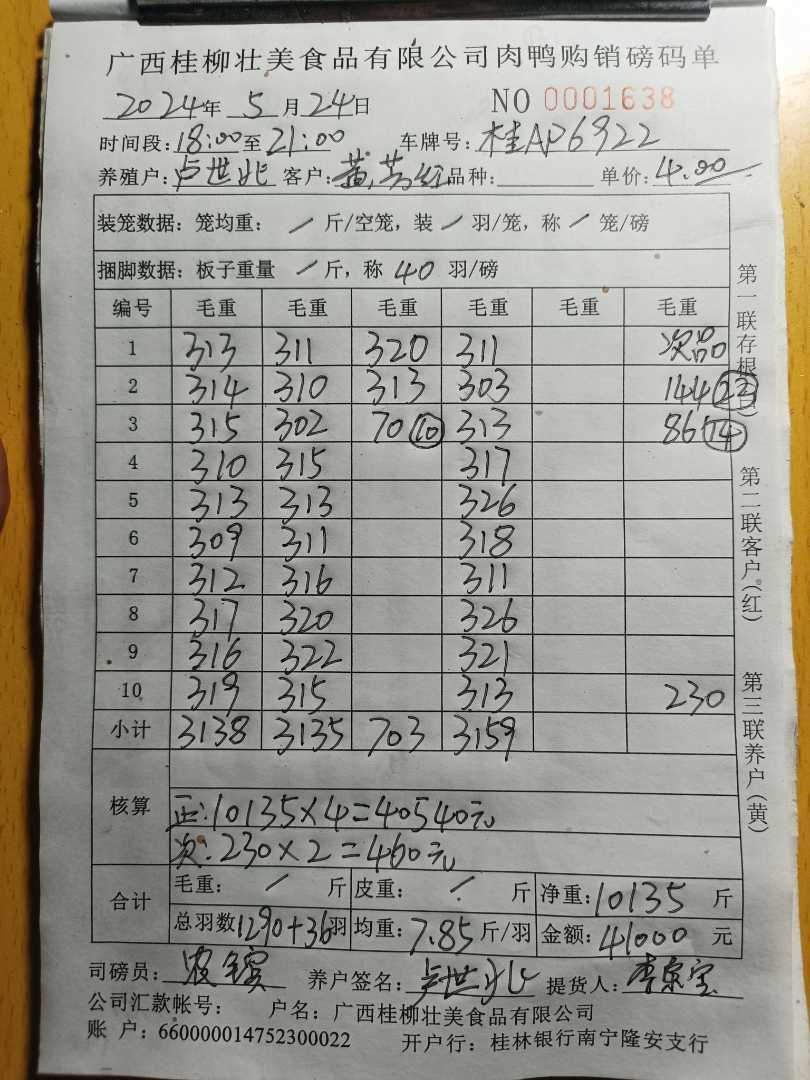 广西桂柳壮美食品有限公司肉鸭购销磅码单
2024年 5 月 24 日 NO 0001638
时间段: 18:00 至 21:00 车牌号: 桂AP6922
养殖户: 卢世兆 客户: 黄 红 品种: 单价: 4.00
装笼数据: 笼均重: / 斤/空笼, 装 / 羽/笼, 称 / 笼/磅
捆脚数据: 板子重量 / 斤, 称 40 羽/磅
编号 毛重 毛重 毛重 毛重 毛重 毛重
1 313 311 320 311 次品
2 314 310 313 303 144
3 315 302 70 10 313 86 14
4 310 315 317
5 313 313 326
6 309 311 318
7 312 316 311
8 317 320 326
9 316 322 321
10 319 315 313 230
小计 3138 3135 703 3159
核算
正: 10135×4=40540元
次: 230×2=460元
合计 毛重: / 斤 皮重: / 斤 净重: 10135 斤
总羽数 1290+36 羽 均重: 7.85 斤/羽 金额: 41000 元
司磅员: 养户签名: 卢世兆 提货人: 李 宝
公司汇款帐号: 户名: 广西桂柳壮美食品有限公司
账 户: 660000014752300022 开户行: 桂林银行南宁隆安支行
第一联存根(白)
第二联客户(红)
第三联养户(黄)